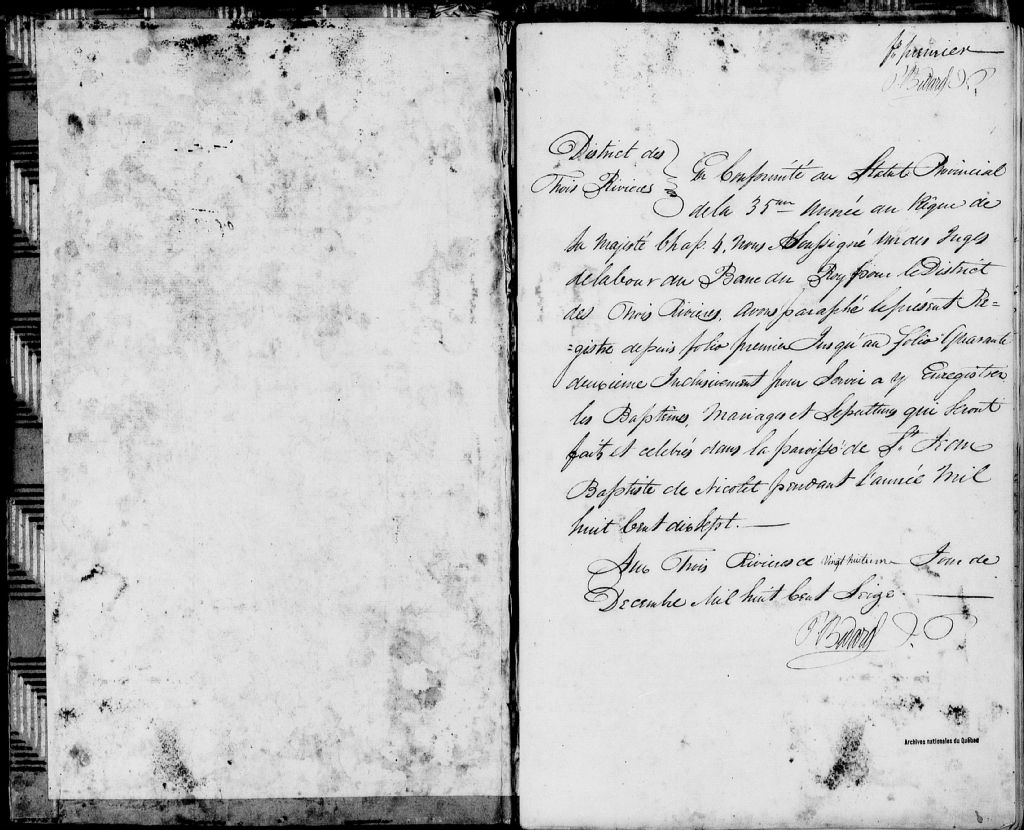 fo. premier
P. Bedard J. P.
District des
Trois Rivieres
En Conformité au Statut Provincial
de la 35eme Année du Règne de
Sa Majesté Chap. 4, Nous Soussigné un des Juges
de la Cour du Banc du Roy pour le District
des Trois Rivieres, avons paraphé le présent Re=
=gistre depuis folio premier Jusqu'au folio Quarante
deuxieme Inclusivement pour Servir a y Enregistrer
les Baptêmes, Mariages et Sepultures qui seront
faits et celebrés dans la paroisse de St. Jean
Baptiste de Nicolet pendant l'année Mil
huit Cent dix Sept.
Aux Trois Rivieres ce vingt huitieme Jour de
Decembre Mil huit Cent Seize.
P. Bedard J. P.
Archives nationales du Québec